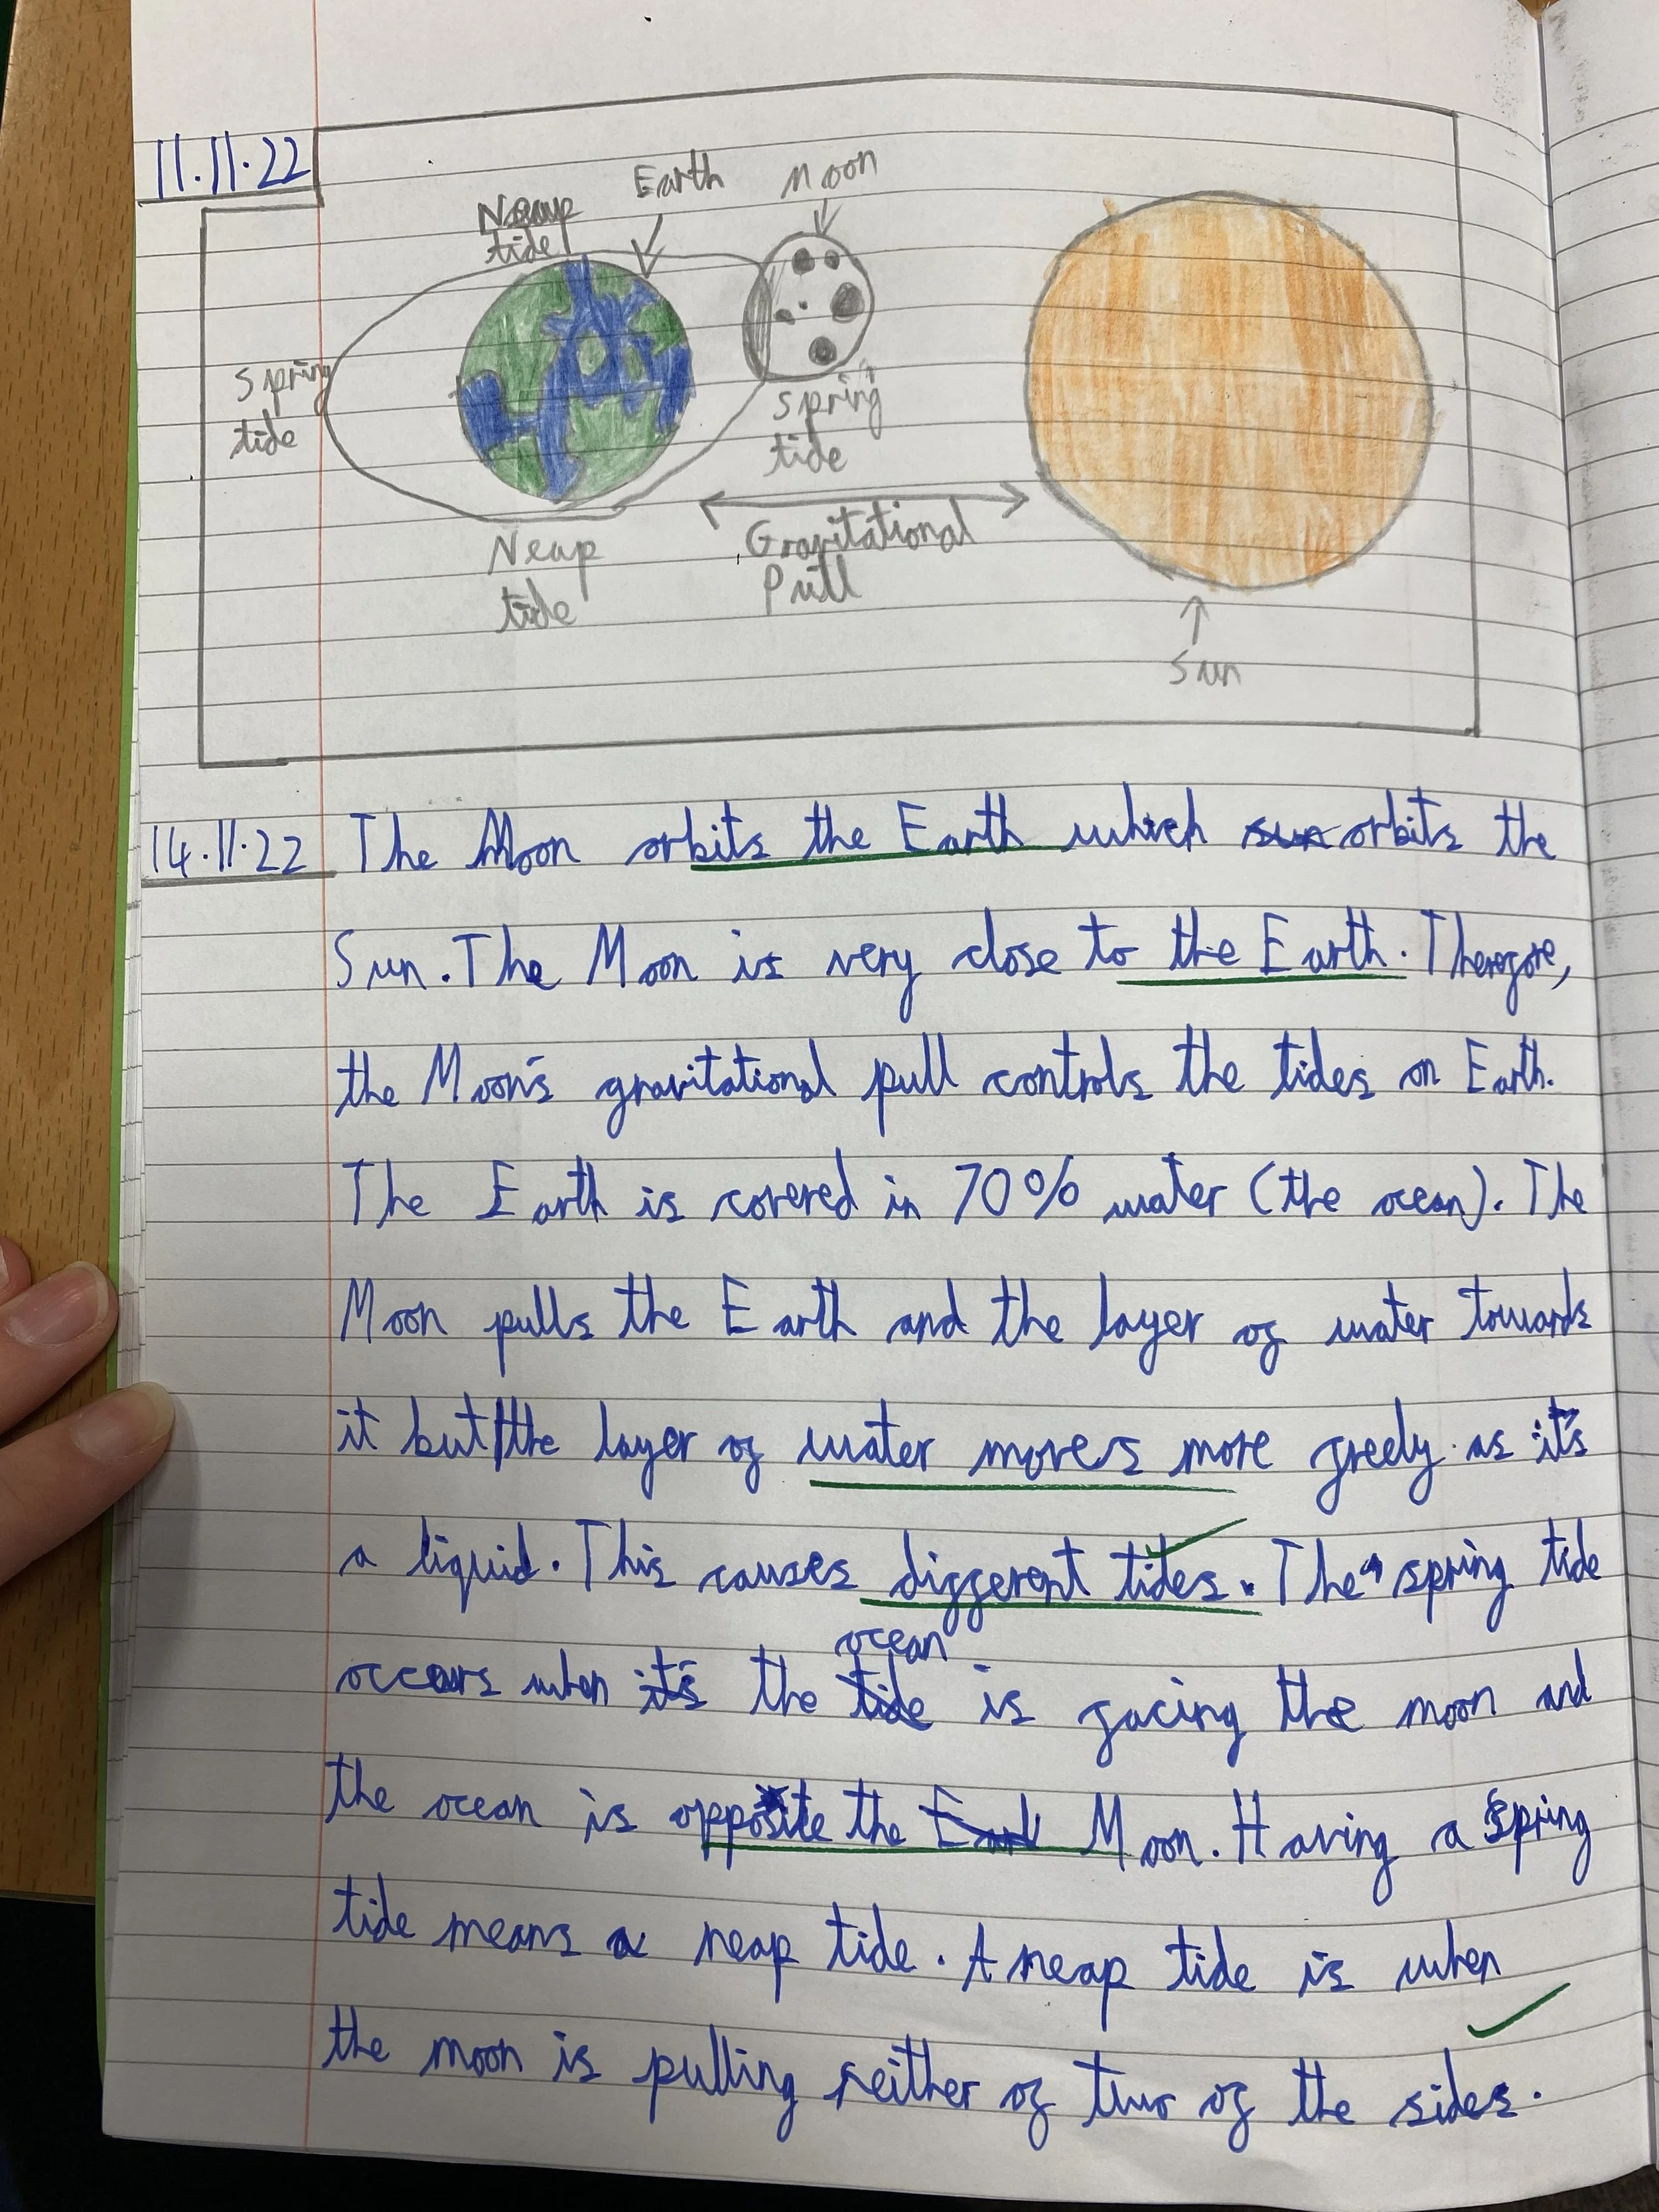 11.11.22
Earth
Moon
Neap
tide
Spring
tide
Spring
tide
Neap
tide
Gravitational
Pull
Sun
14.11.22 The Moon orbits the Earth which sun orbits the
Sun. The Moon is very close to the Earth. Therefore,
the Moon's gravitational pull controls the tides on Earth.
The Earth is covered in 70% water (the ocean). The
Moon pulls the Earth and the layer of water towards
it but the layer of water moves more freely as it's
a liquid. This causes different tides. The spring tide
ocean
occurs when it's the tide is facing the moon and
the ocean is opposite the Earth Moon. Having a Spring
tide means a neap tide. A neap tide is when
the moon is pulling neither of two of the sides.